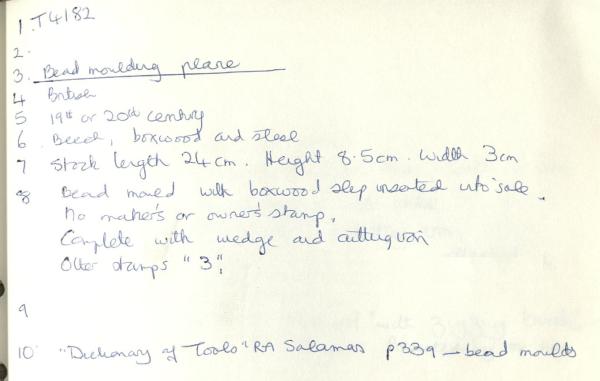 1. T4182
2.
3. Bead moulding plane
4 British
5 19th or 20th century
6. Beech, boxwood and steel
7 Stock length 24cm. Height 8.5cm. Width 3cm
8 Bead mould with boxwood slip inserted into sole.
No maker's or owner's stamp.
Complete with wedge and cutting iron
Other stamps "3".
9
10 "Dictionary of Tools" RA Salaman p339 - bead moulds